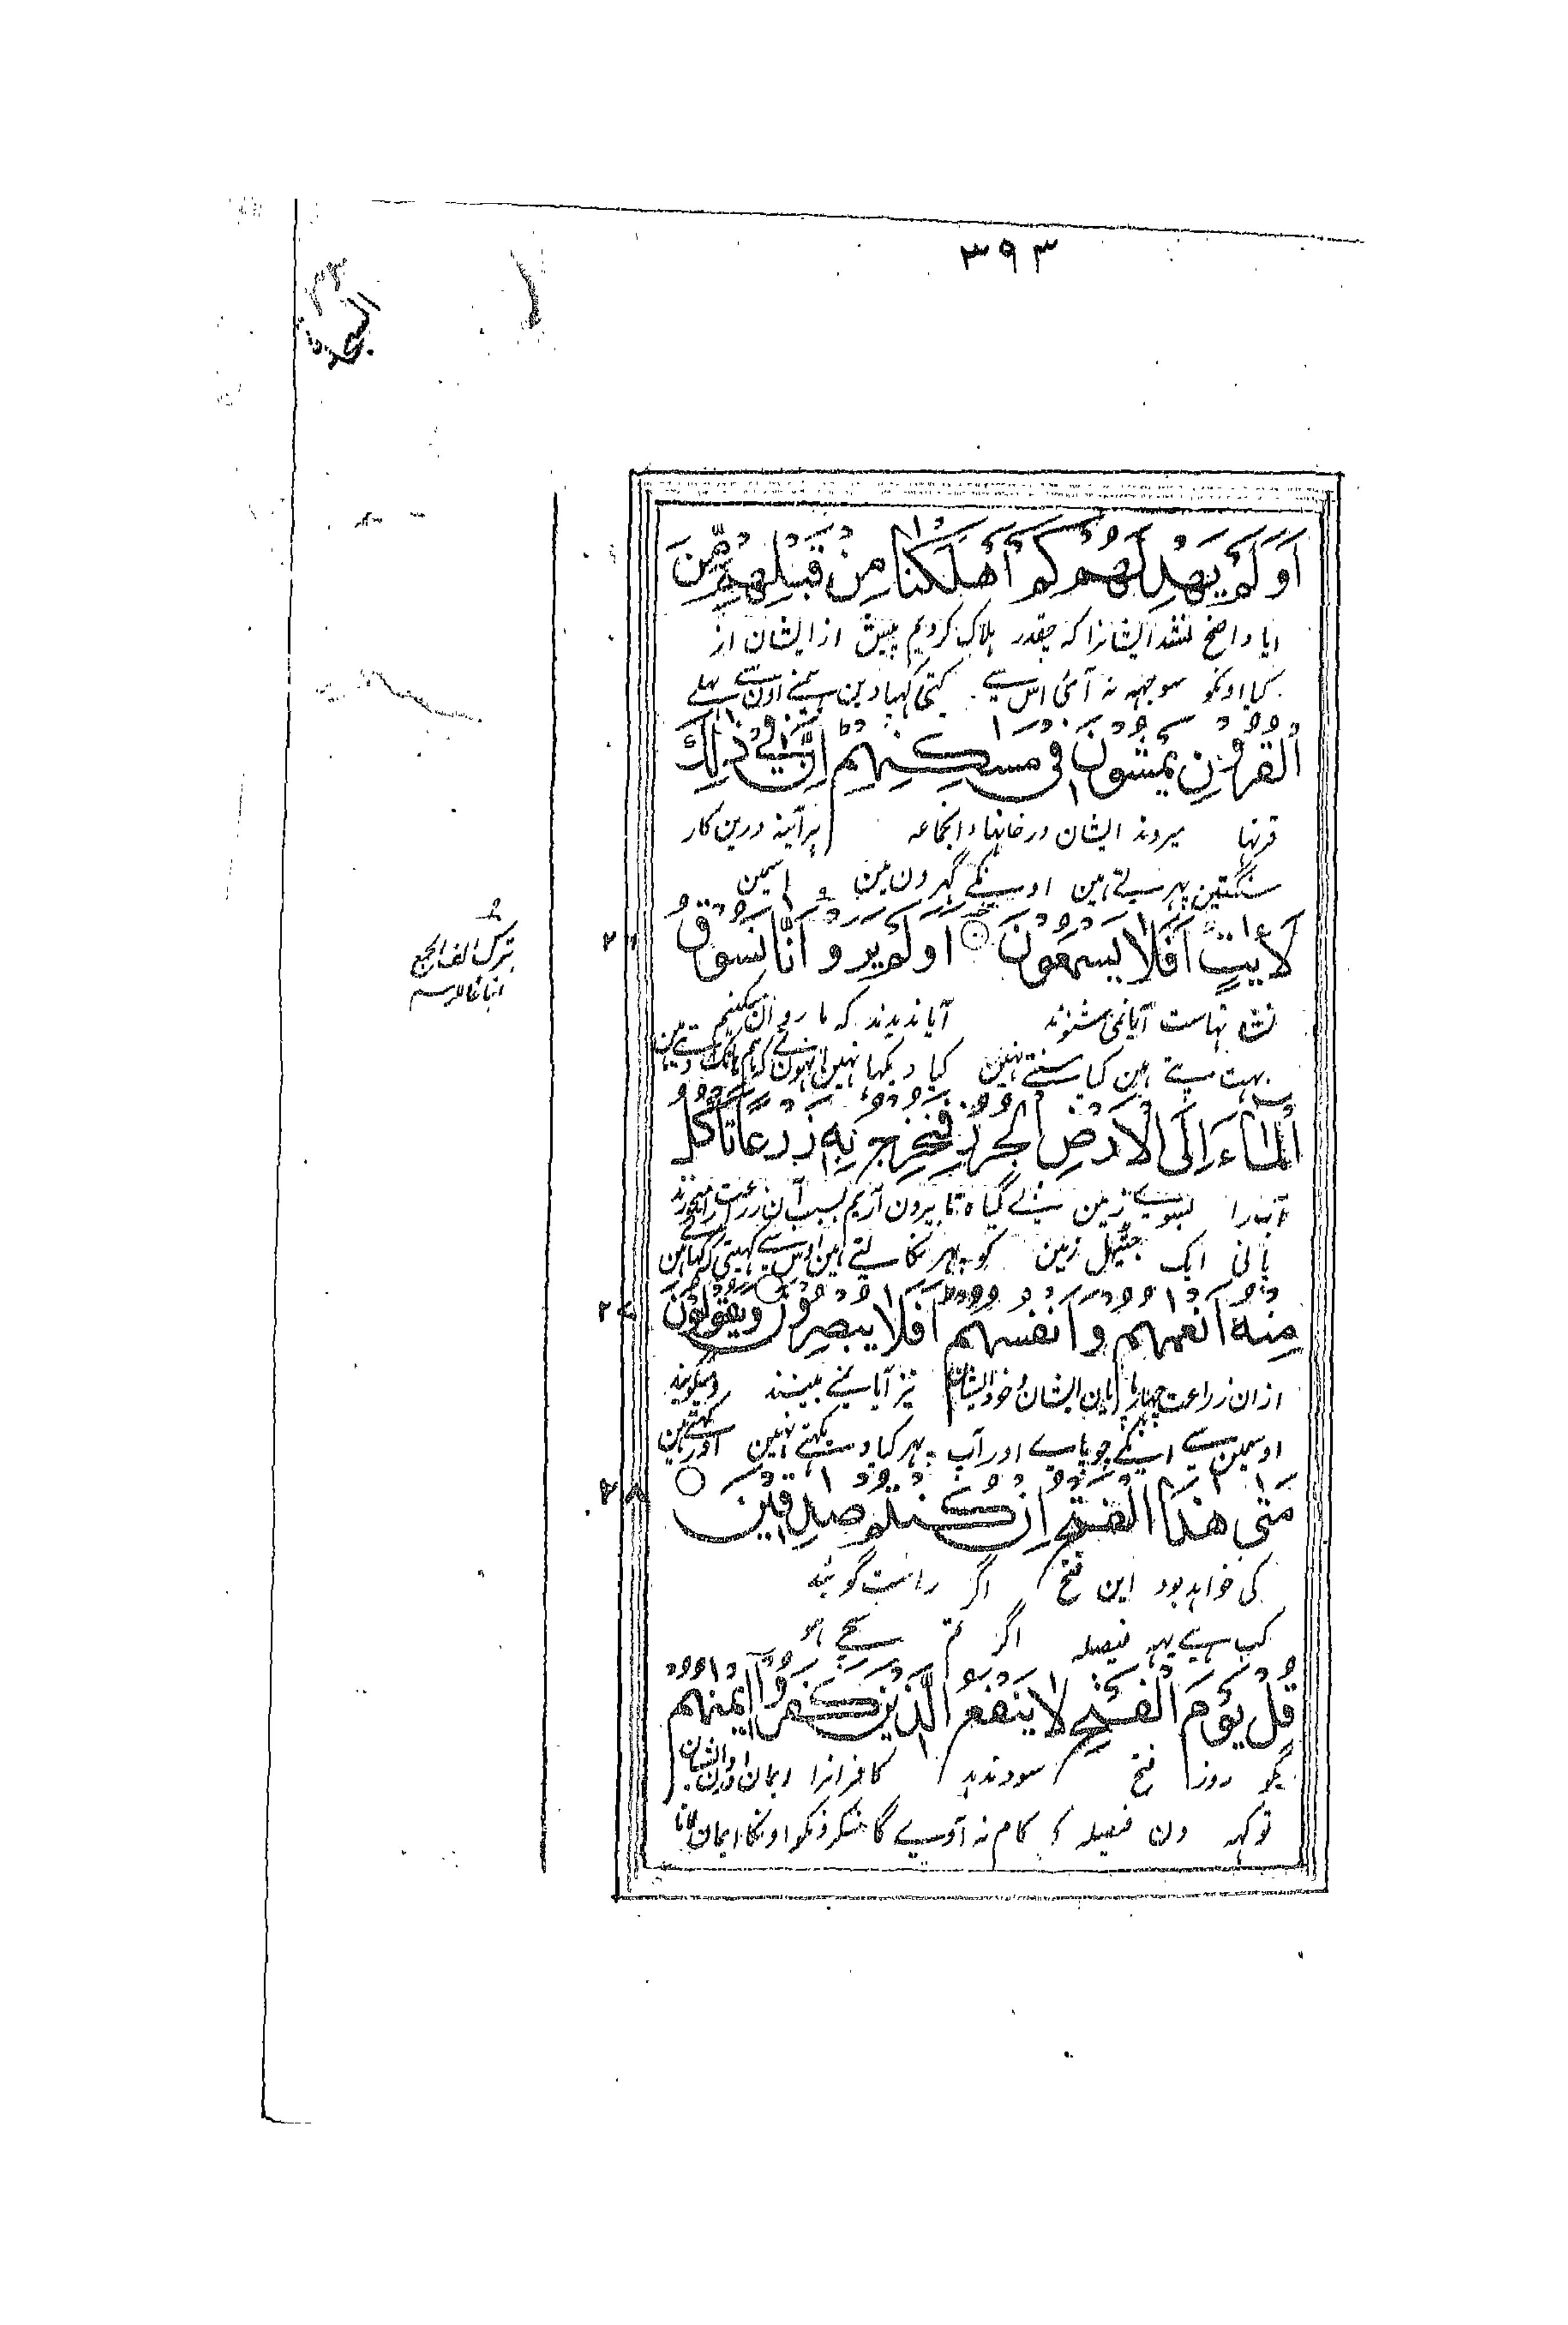 ٣٩٣
السجدة
اَوَلَمْ يَهْدِ لَهُمْ كَمْ اَهْلَكْنَا مِنْ قَبْلِهِمْ مِّنَ
ایا واضح نشد ایشانرا که چقدر ہلاک کردیم پیش از ایشان از
کیا اونکو سوجہہ نہ آئی اس سے کتنی کہپا دین ہمنے اون سے پہلے
الْقُرُوْنِ يَمْشُوْنَ فِى مَسٰكِنِهِمْ اِنَّ فِيْ ذٰلِكَ
قرنہا میروند ایشان در خانہاء انجماعہ ہر آئینہ درین کار
سنگتین پہرتے ہین اونکے گہرون مین اسمین
لَاٰيٰتٍ اَفَلَا يَسْمَعُوْنَ اَوَلَمْ يَرَوْا اَنَّا نَسُوْقُ
٢٦
نشانہاست آیا نمی شنوند آیا ندیدند که ما روان میکنیم
بہت پتے ہین کیا سنتے نہین کیا دیکہا نہین انہون نے کہ ہم ہانک دیتے ہین
الْمَآءَ اِلَى الْاَرْضِ الْجُرُزِ فَنُخْرِجُ بِهٖ زَرْعًا تَاْكُلُ
آب را بسوے زمین بے گیاہ تا بیرون آریم بسبب آن زراعت را میخورند
پانی ایک چٹیل زمین کو پہر نکالتے ہین اوس سے کہیتی کہ کہاتے ہین
مِنْهُ اَنْعٰمُهُمْ وَاَنْفُسُهُمْ اَفَلَا يُبْصِرُوْنَ وَيَقُوْلُوْنَ
٢٧
از ان زراعت چہارپایان ایشان و خود ایشان نیز آیا نمے بینند و میگویند
اوسمین سے اونکے چوپاے اور آپ پہر کیا دیکہتے نہین اور کہتے ہین
مَتٰى هٰذَا الْفَتْحُ اِنْ كُنْتُمْ صٰدِقِيْنَ
٢٨
کی خواہد بود این فتح اگر راست گویید
کب ہے یہہ فیصلہ اگر تم سچے ہو
قُلْ يَوْمَ الْفَتْحِ لَا يَنْفَعُ الَّذِيْنَ كَفَرُوْا اِيْمٰنُهُمْ
بگو روز فتح سود ندہد کافرانرا ایمان آوردن ایشان
تو کہہ دن فیصلہ کے کام نہ آوے گا منکرونکو اونکا ایمان لانا